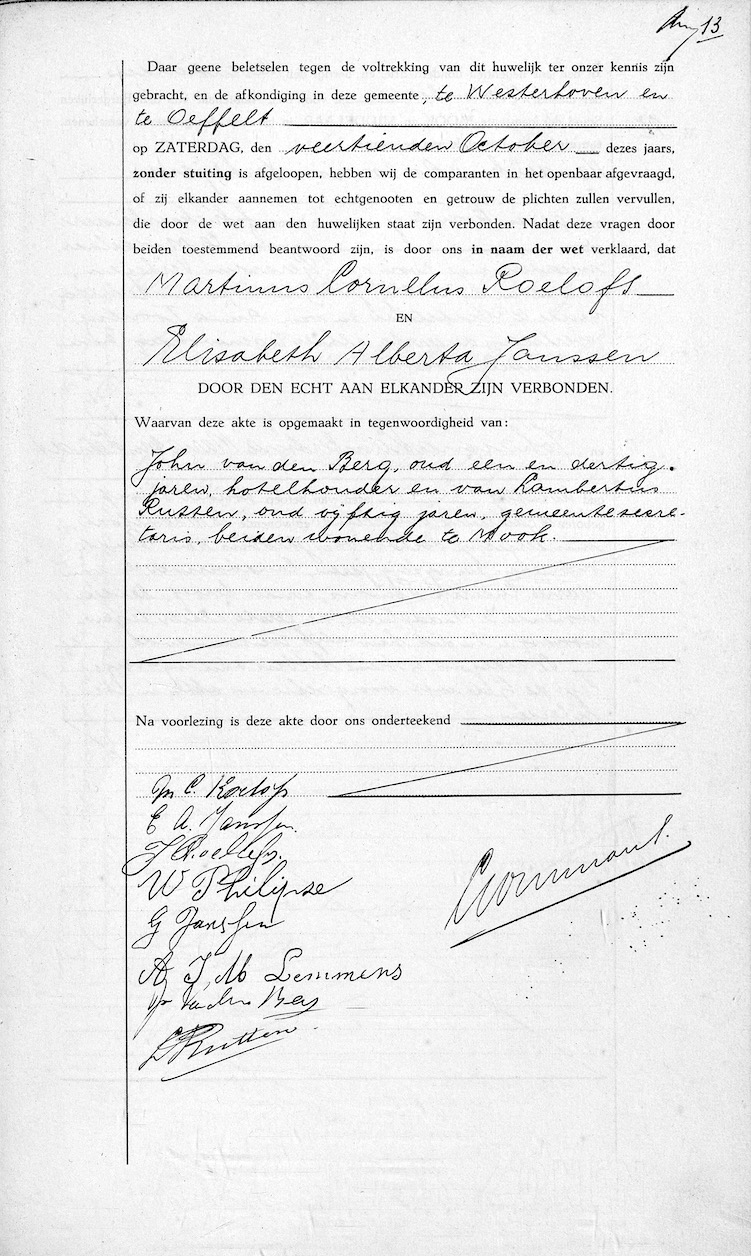 13
Daar geene beletselen tegen de voltrekking van dit huwelijk ter onzer kennis zijn
gebracht, en de afkondiging in deze gemeente, te Westerhoven en
te Oeffelt
op ZATERDAG, den veertienden October dezes jaars,
zonder stuiting is afgeloopen, hebben wij de comparanten in het openbaar afgevraagd,
of zij elkander aannemen tot echtgenooten en getrouw de plichten zullen vervullen,
die door de wet aan den huwelijken staat zijn verbonden. Nadat deze vragen door
beiden toestemmend beantwoord zijn, is door ons in naam der wet verklaard, dat
Martinus Cornelus Roelofs
EN
Elisabeth Alberta Janssen
DOOR DEN ECHT AAN ELKANDER ZIJN VERBONDEN.
Waarvan deze akte is opgemaakt in tegenwoordigheid van:
John van den Berg, oud een en dertig
jaren, hotelhouder en van Lambertus
Rutten, oud vijftig jaren, gemeentesecre-
taris, beiden wonende te Mook.
Na voorlezing is deze akte door ons onderteekend
M C. Roelofs
E A. Janssen
J Roelofs.
W Philipse
G Janssen
A J, M Lemmens
van den Berg
L Rutten